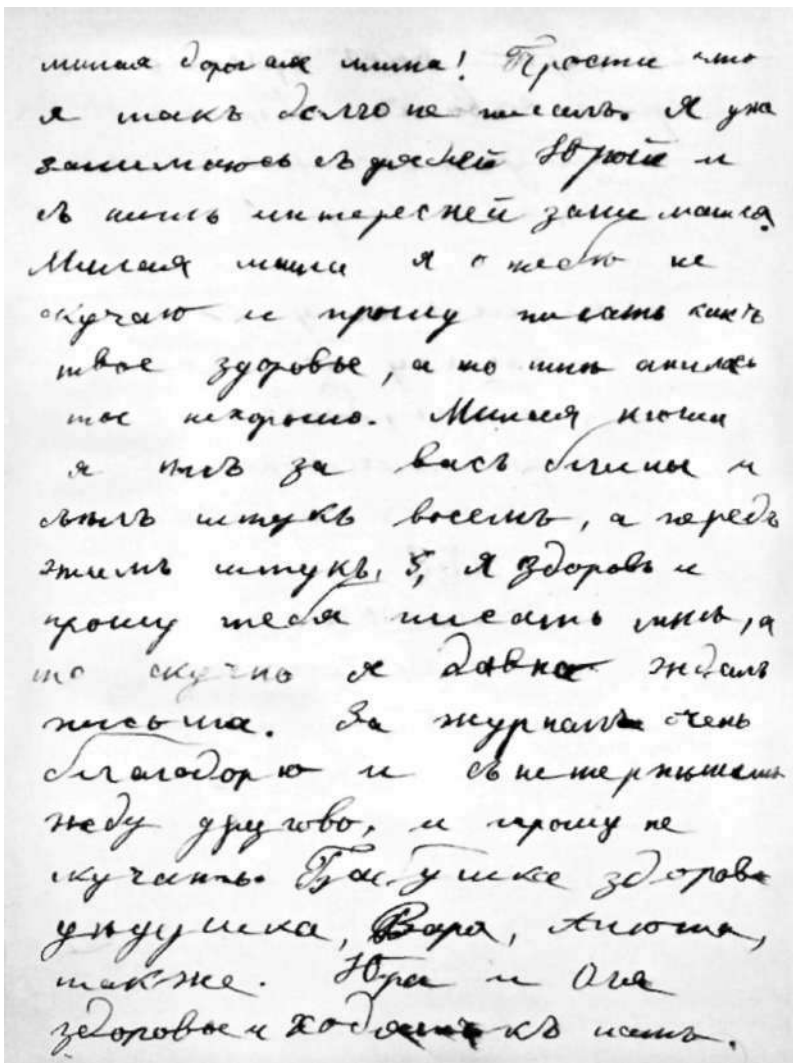 милая дорогая мама! Прости что
я такъ долго не писалъ. Я уже
занимаюсь съ дядей Юрой и
съ нимъ интересней заниматся.
Милая мама я о тебѣ не
скучаю и прошу писать какъ
твое здоровье, а то мнѣ
нехорошо. Милая мама
я ѣлъ за васъ блины и
съѣлъ штукъ восемь, а передъ
этимъ штукъ, 5, Я здоровъ и
прошу тебя писать мнѣ, а
то скучно я давно ждалъ
письма. За журналъ очень
благодорю и съ нетерпѣніемъ
жду другово, и прошу не
скучать. Бабушка здорова
дѣдушка, Вара, Анюта,
также. Юра и Оля
здоровые и ходятъ къ намъ.